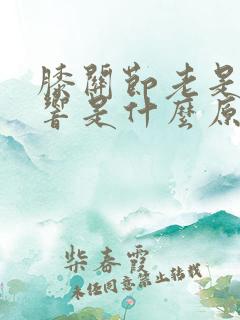 膝關節老是
響是什麼原
柴春霞
未經同意禁止轉載